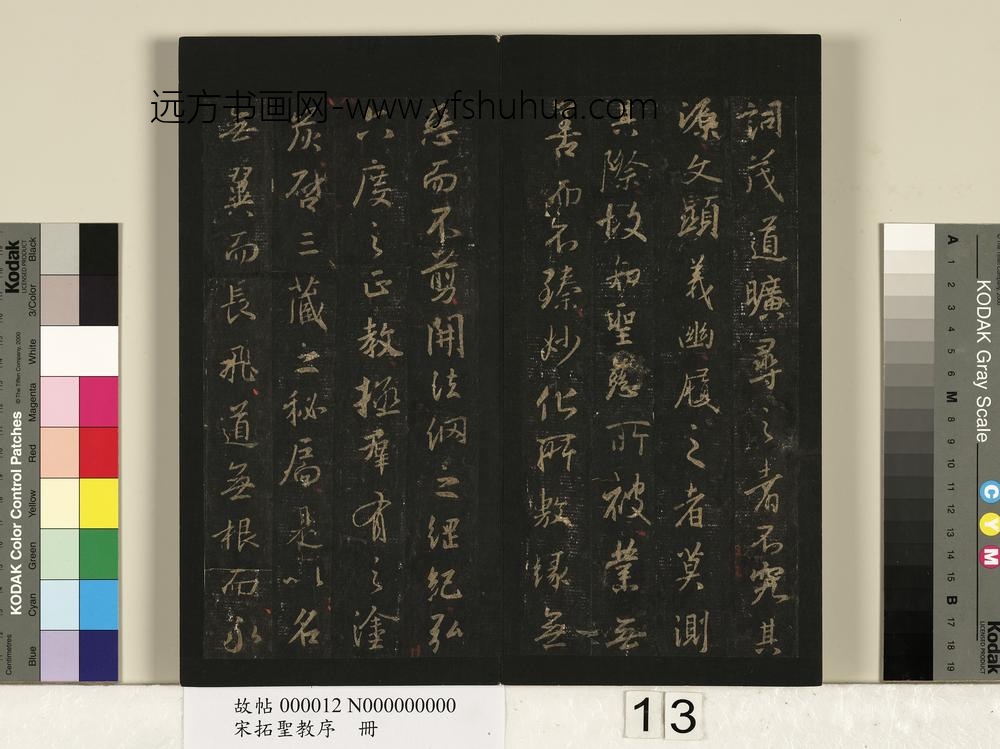 远方书画网-www.yfshuhua.com
詞茂道曠尋之者不究其
源文顯義幽履之者莫測
其際故知聖慈所被業無
善而不臻妙化所敷緣無
惡而不剪開法網之綱紀弘
六度之正教拯群有之塗
炭啓三藏之秘扃是以名
無翼而長飛道無根而永
故帖 000012 N000000000
宋拓聖教序 冊
13
Kodak
LICENSED PRODUCT
KODAK Color Control Patches
© The Tiffen Company, 2000
Centimetres
Blue
Cyan
Green
Yellow
Red
Magenta
White
3/Color
Black
KODAK Gray Scale
A 1 2 3 4 5 6 M 8 9 10 11 12 13 14 15 B 17 18 19
C
Y
M
Kodak
LICENSED PRODUCT